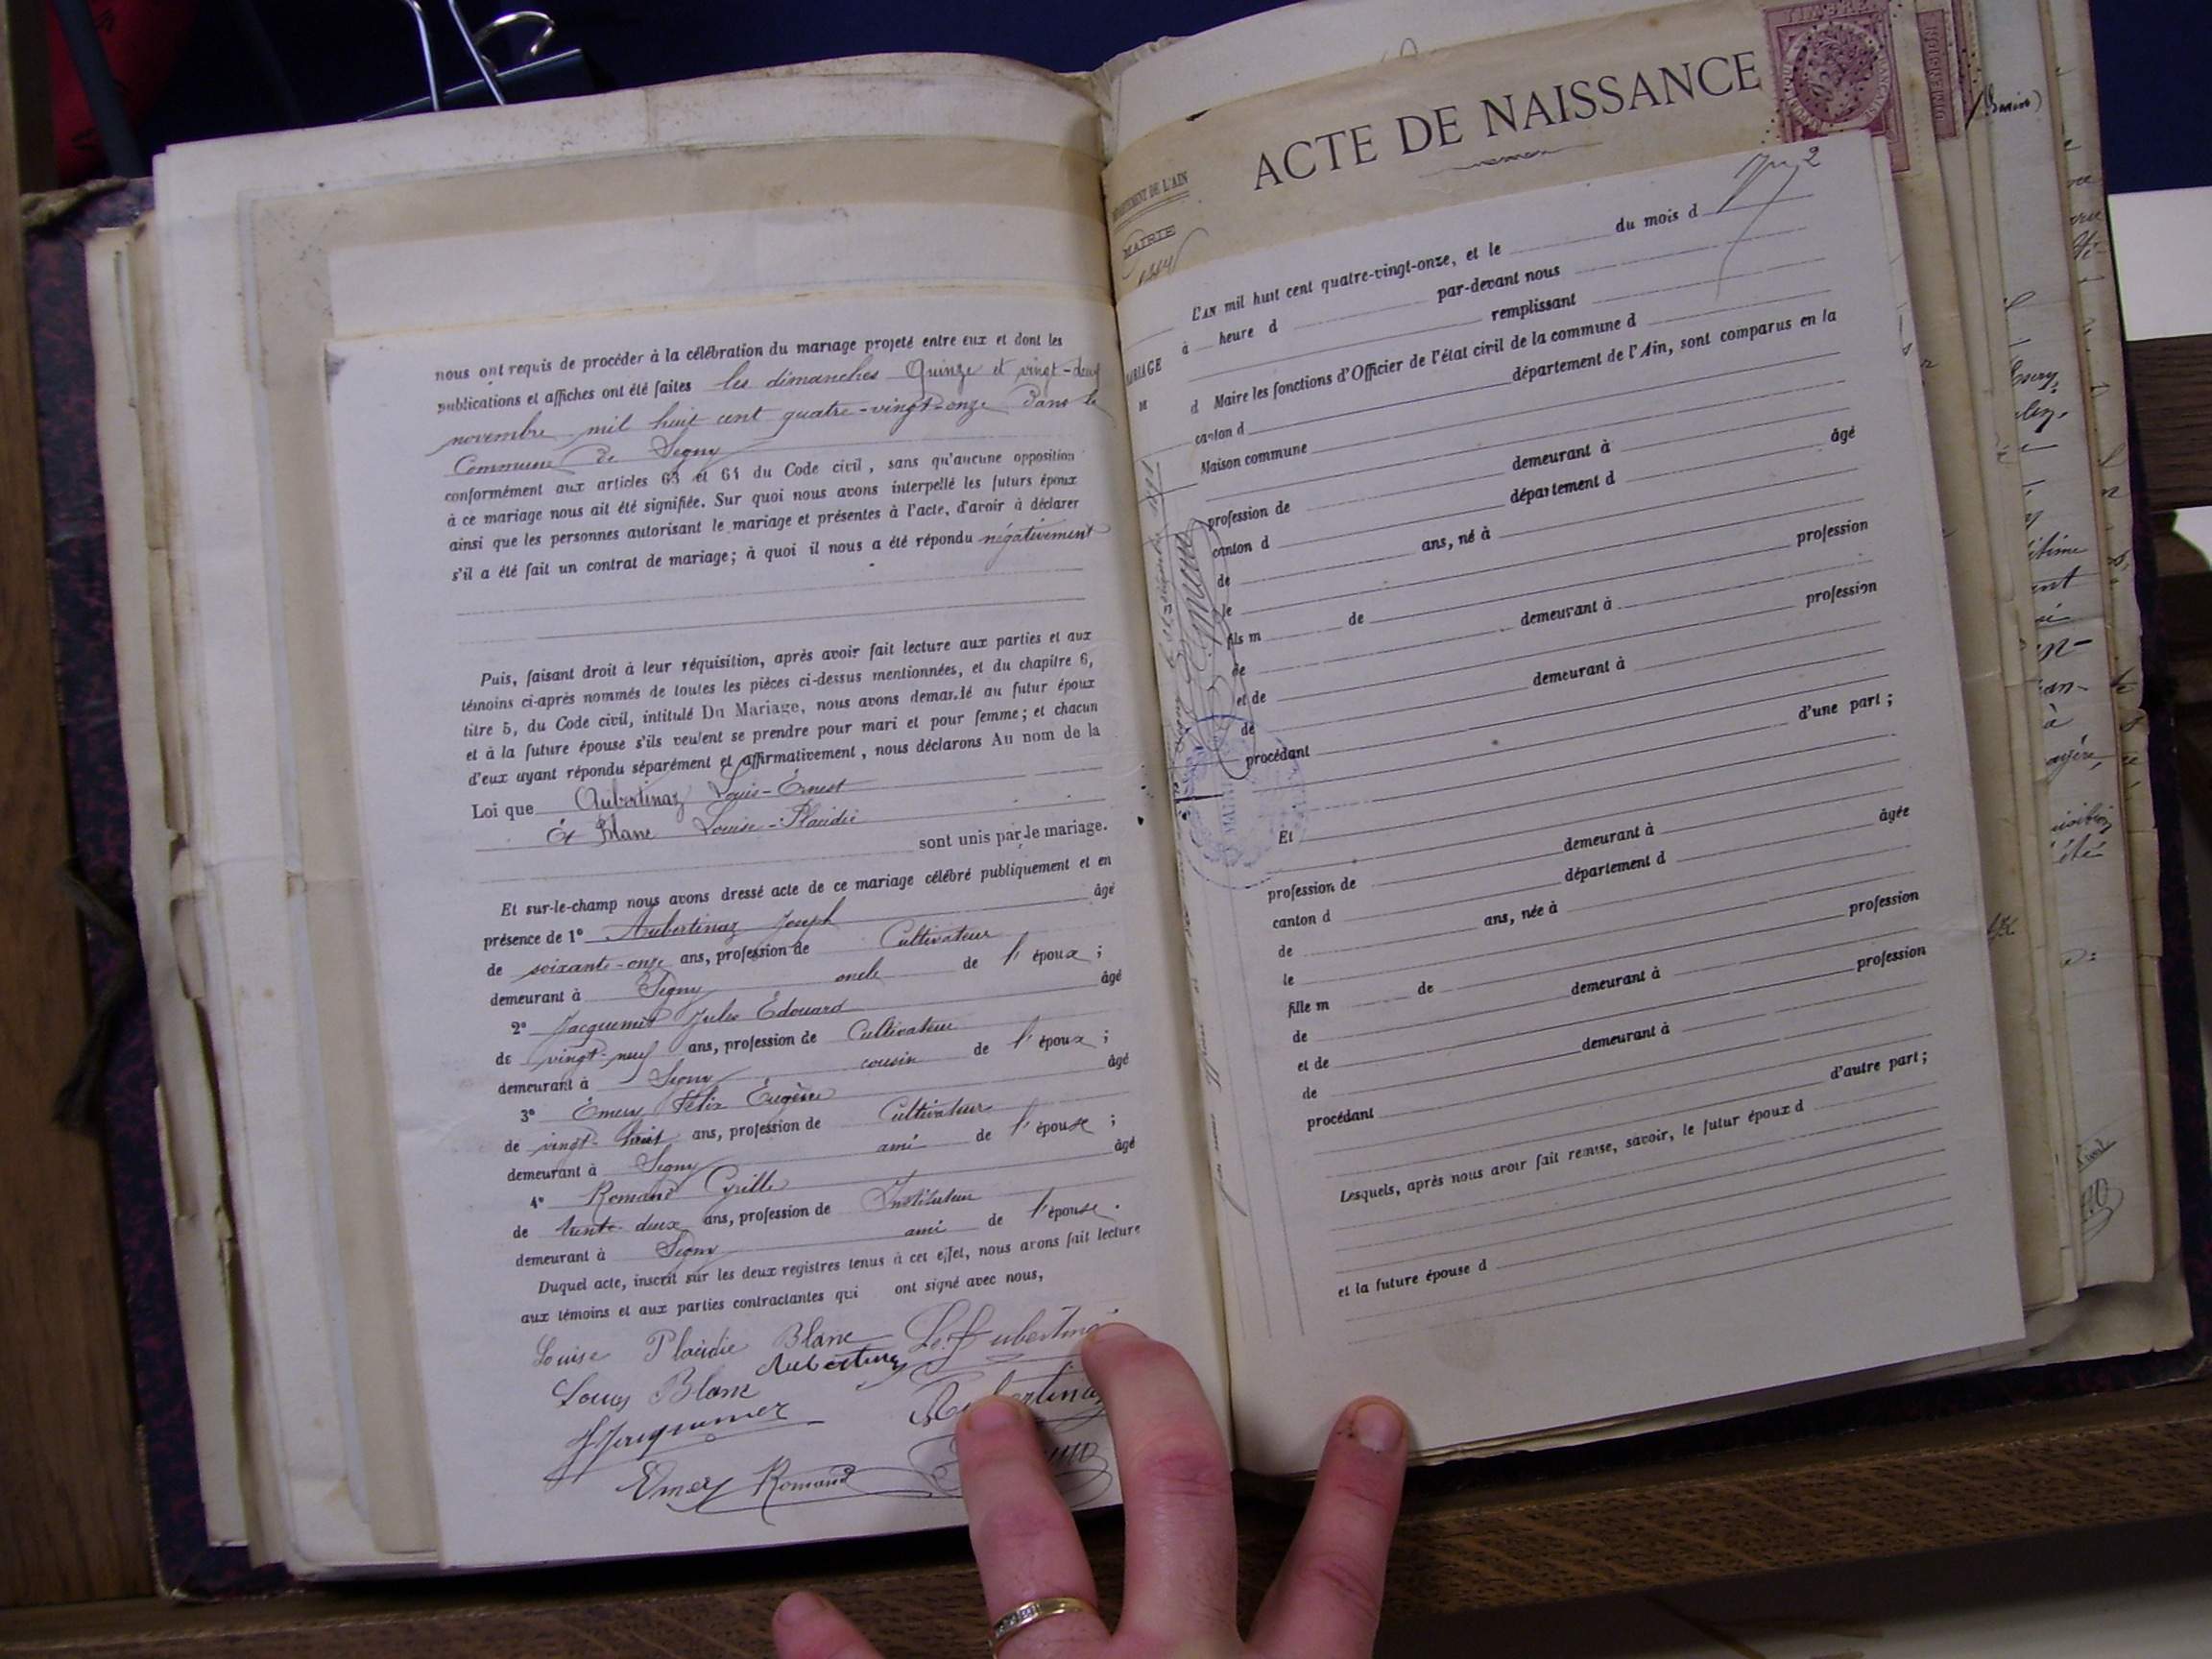 nous ont requis de procéder à la célébration du mariage projeté entre eux et dont les
publications et affiches ont été faites les dimanches Quinze et vingt-deux
novembre mil huit cent quatre-vingt-onze dans la
Commune de Segny
conformément aux articles 63 et 64 du Code civil, sans qu'aucune opposition
à ce mariage nous ait été signifiée. Sur quoi nous avons interpellé les futurs époux
ainsi que les personnes autorisant le mariage et présentes à l'acte, d'avoir à déclarer
s'il a été fait un contrat de mariage; à quoi il nous a été répondu négativement
Puis, faisant droit à leur réquisition, après avoir fait lecture aux parties et aux
témoins ci-après nommés de toutes les pièces ci-dessus mentionnées, et du chapitre 6,
titre 5, du Code civil, intitulé Du Mariage, nous avons demandé au futur époux
et à la future épouse s'ils veulent se prendre pour mari et pour femme; et chacun
d'eux ayant répondu séparément et affirmativement, nous déclarons Au nom de la
Loi que Aubertinaz Louis-Ernest
Et Blanc Louise-Placidie
sont unis par le mariage.
Et sur-le-champ nous avons dressé acte de ce mariage célébré publiquement et en
présence de 1° Aubertinaz Joseph âgé
de soixante-onze ans, profession de Cultivateur
demeurant à Segny oncle de l'époux;
2° Jacquemet Jules Édouard âgé
de vingt-neuf ans, profession de Cultivateur
demeurant à Segny cousin de l'époux;
3° Émery Félix Eugène âgé
de vingt-huit ans, profession de Cultivateur
demeurant à Segny ami de l'épouse;
4° Romand Cyrille âgé
de trente-deux ans, profession de Instituteur
demeurant à Segny ami de l'épouse.
Duquel acte, inscrit sur les deux registres tenus à cet effet, nous avons fait lecture
aux témoins et aux parties contractantes qui ont signé avec nous,
Louise Placidie Blanc
Aubertinaz
Blanc
Jacquemet
Emery Romand
ACTE DE NAISSANCE
DÉPARTEMENT DE L'AIN
MAIRIE
MARIAGE
DE
L'AN mil huit cent quatre-vingt-onze, et le du mois d
à heure d par-devant nous
remplissant
d Maire les fonctions d'Officier de l'état civil de la commune d
canton d département de l'Ain, sont comparus en la
Maison commune
profession de demeurant à
canton d département d âgé
de ans, né à
le
fils m de profession
de demeurant à
et de profession
de demeurant à
procédant
d'une part;
Et
profession de demeurant à
canton d département d âgée
de ans, née à
le
fille m de profession
de demeurant à
et de profession
de demeurant à
procédant
d'autre part;
Lesquels, après nous avoir fait remise, savoir, le futur époux d
et la future épouse d